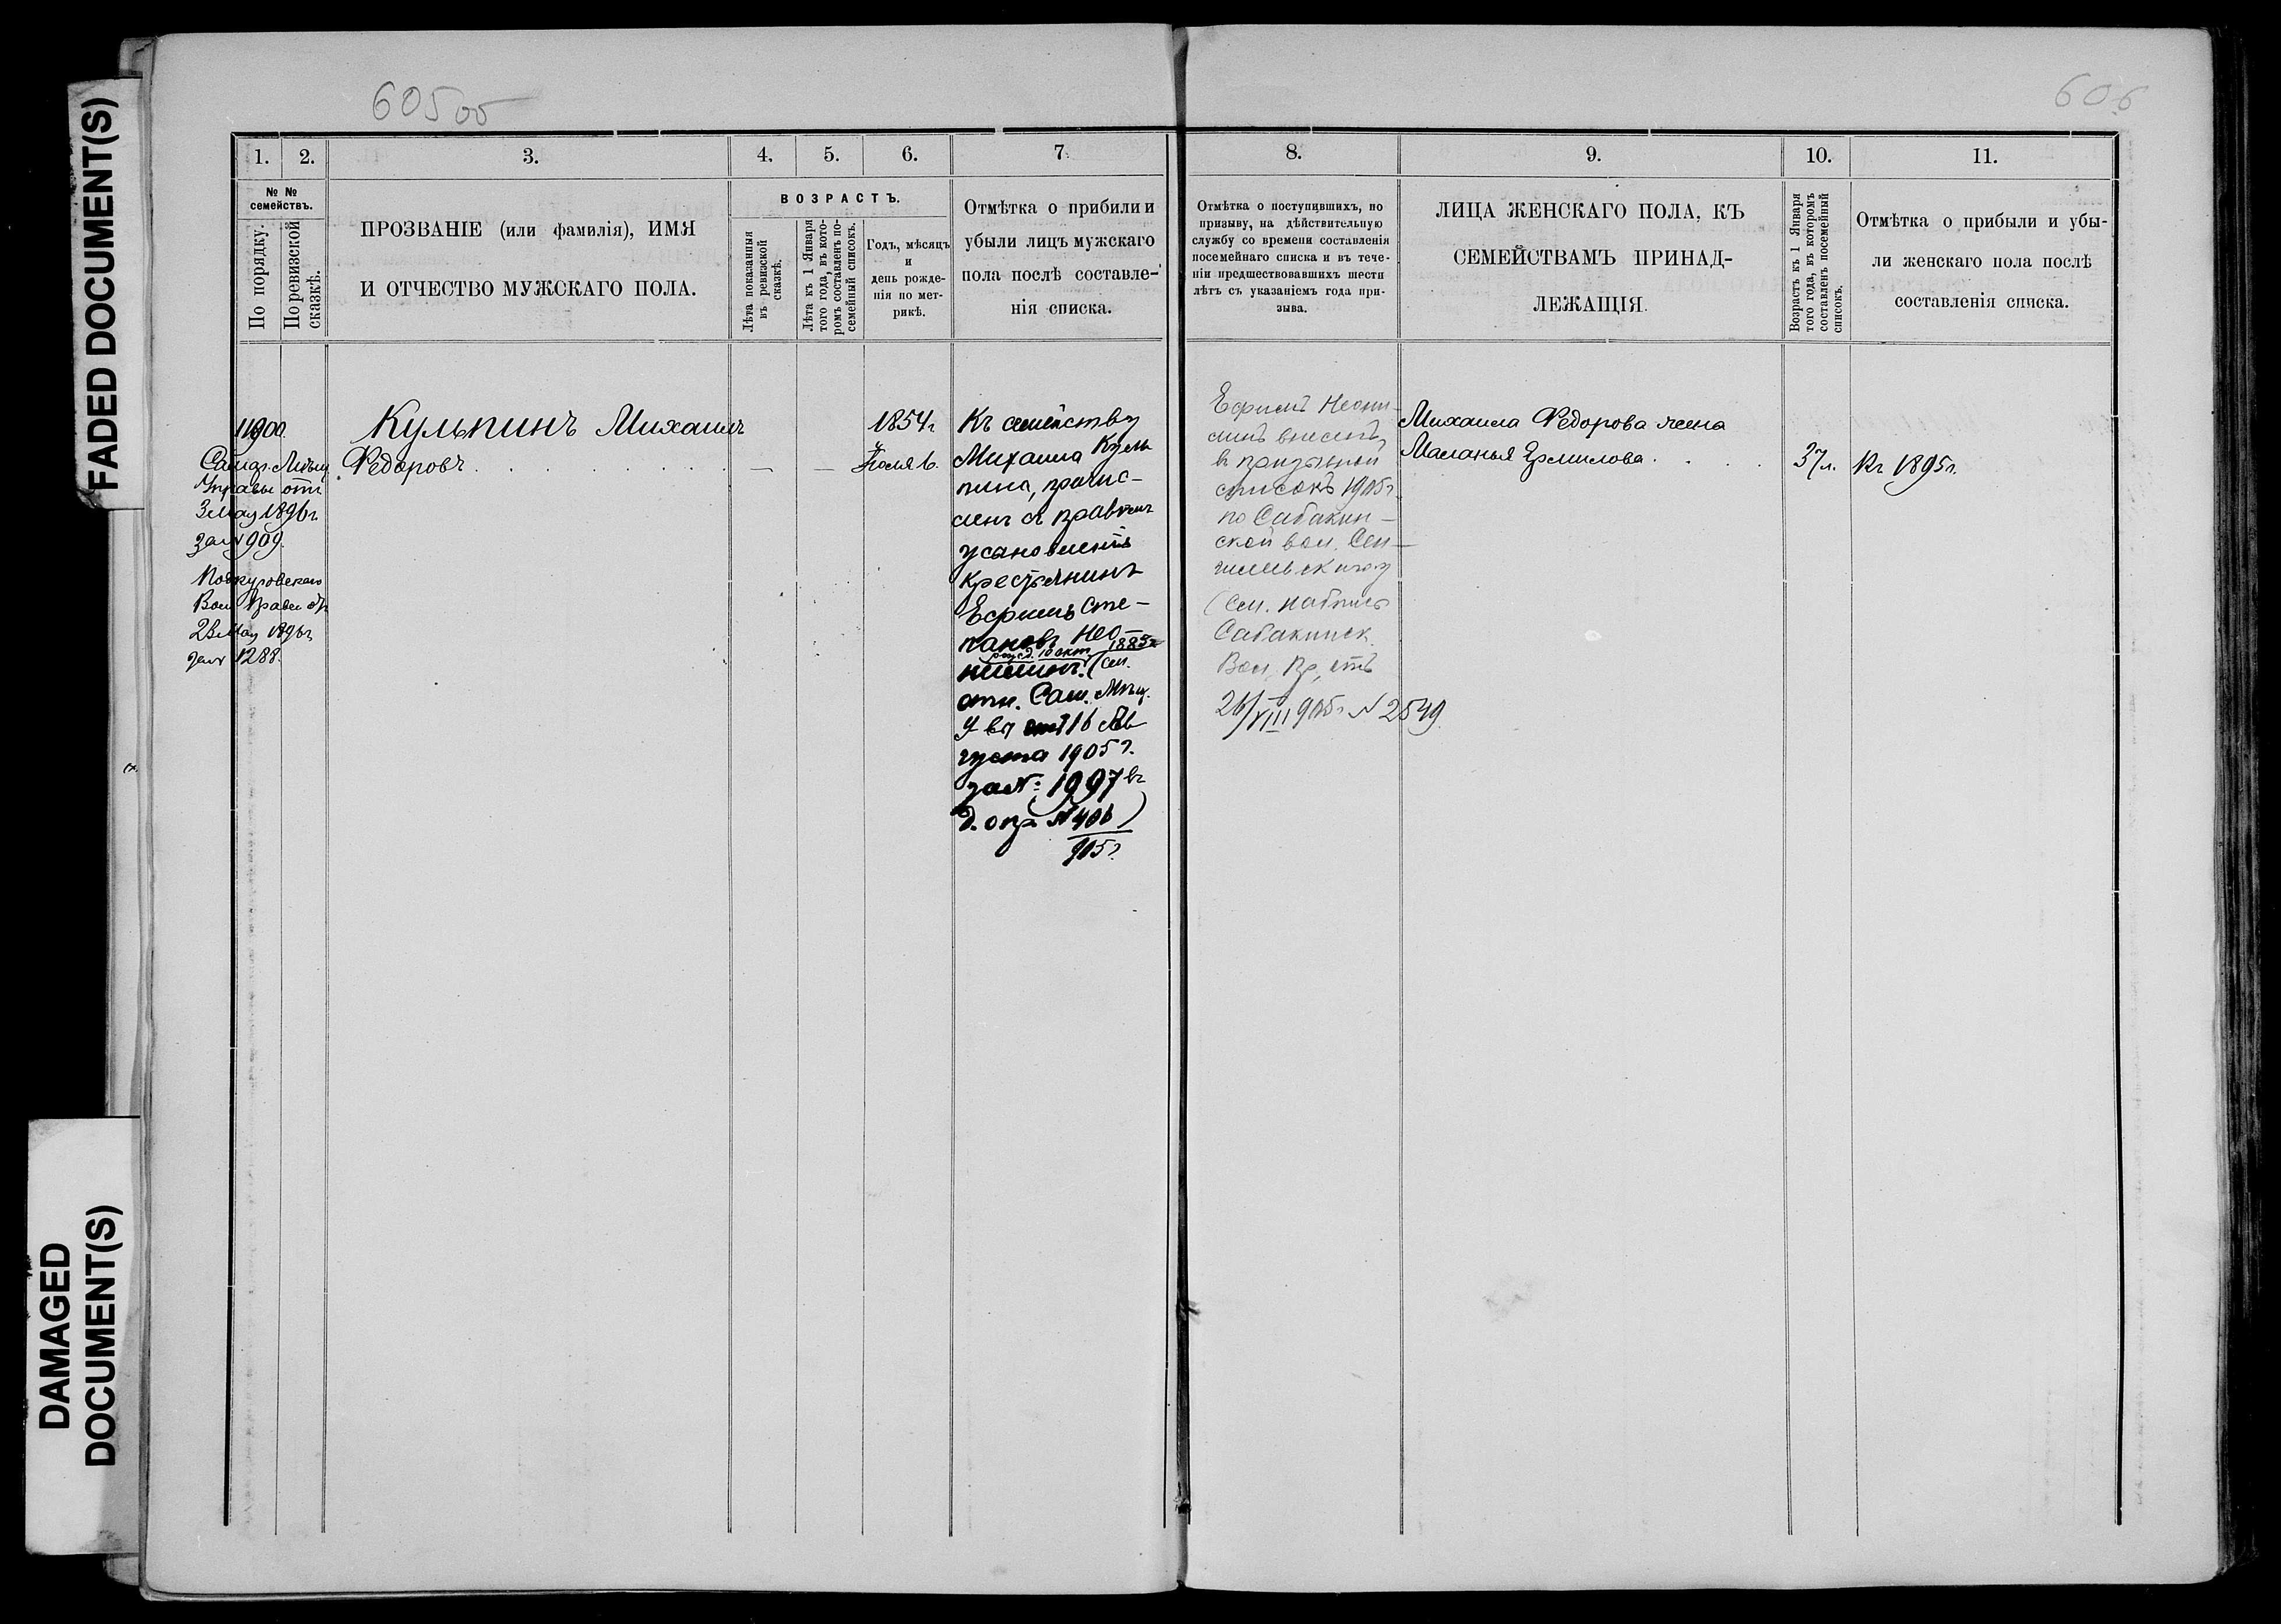 FADED DOCUMENT(S)
DAMAGED
DOCUMENT(S)
605 об
606
1.
2.
3.
4.
5.
6.
7.
8.
9.
10.
11.
№ №
семействъ.
По порядку.
По ревизской
сказкѣ.
ПРОЗВАНІЕ (или фамилія), ИМЯ
И ОТЧЕСТВО МУЖСКАГО ПОЛА.
ВОЗРАСТЪ.
Лѣта показанныя
въ ревизской
сказкѣ.
Лѣта къ 1 Января
того года, въ кото-
ромъ составленъ по-
семейный списокъ.
Годъ, мѣсяцъ
и
день рожде-
нія по мет-
рикѣ.
Отмѣтка о прибыли и
убыли лицъ мужскаго
пола послѣ составле-
нія списка.
Отмѣтка о поступившихъ, по
призыву, на дѣйствительную
службу со времени составленія
посемейнаго списка и въ тече-
ніи предшествовавшихъ шести
лѣтъ съ указаніемъ года при-
зыва.
ЛИЦА ЖЕНСКАГО ПОЛА, КЪ
СЕМЕЙСТВАМЪ ПРИНАД-
ЛЕЖАЩІЯ.
Возрастъ къ 1 Января
того года, въ которомъ
составленъ посемейный
списокъ.
Отмѣтка о прибыли и убы-
ли женскаго пола послѣ
составленія списка.
Мѣщ.
Управы отъ
3 Мая 1896 г.
за № 909.
Вол. Правл. от
23 Мая 1896 г.
за № 1288.
Кульпинъ Михаилъ
Федоровъ
1854 г
Іюля 6.
Къ семейству
Михаила Куль
пина, припис-
анъ съ правомъ
усыновленія
крестьянинъ
Ефимъ Сте-
пановъ Нео-
рожд. 10 окт. 1883 г
(см.
отн. Сам. Мѣщ.
У въ 16 Ав
густа 1905 г.
за № 1997 въ
д. опр № 406)
905 г.
Ефимъ
внесенъ
въ призывной
списокъ 1905 г.
по Сабакин-
ской вол. Сен-
гилеевск
(См. надпись
Сабакинск.
Вол. Пр. отъ
26/VIII 905 г № 2549.
Михаила Федорова жена
Маланья Ермилова
37 л.
Къ 1895 г.